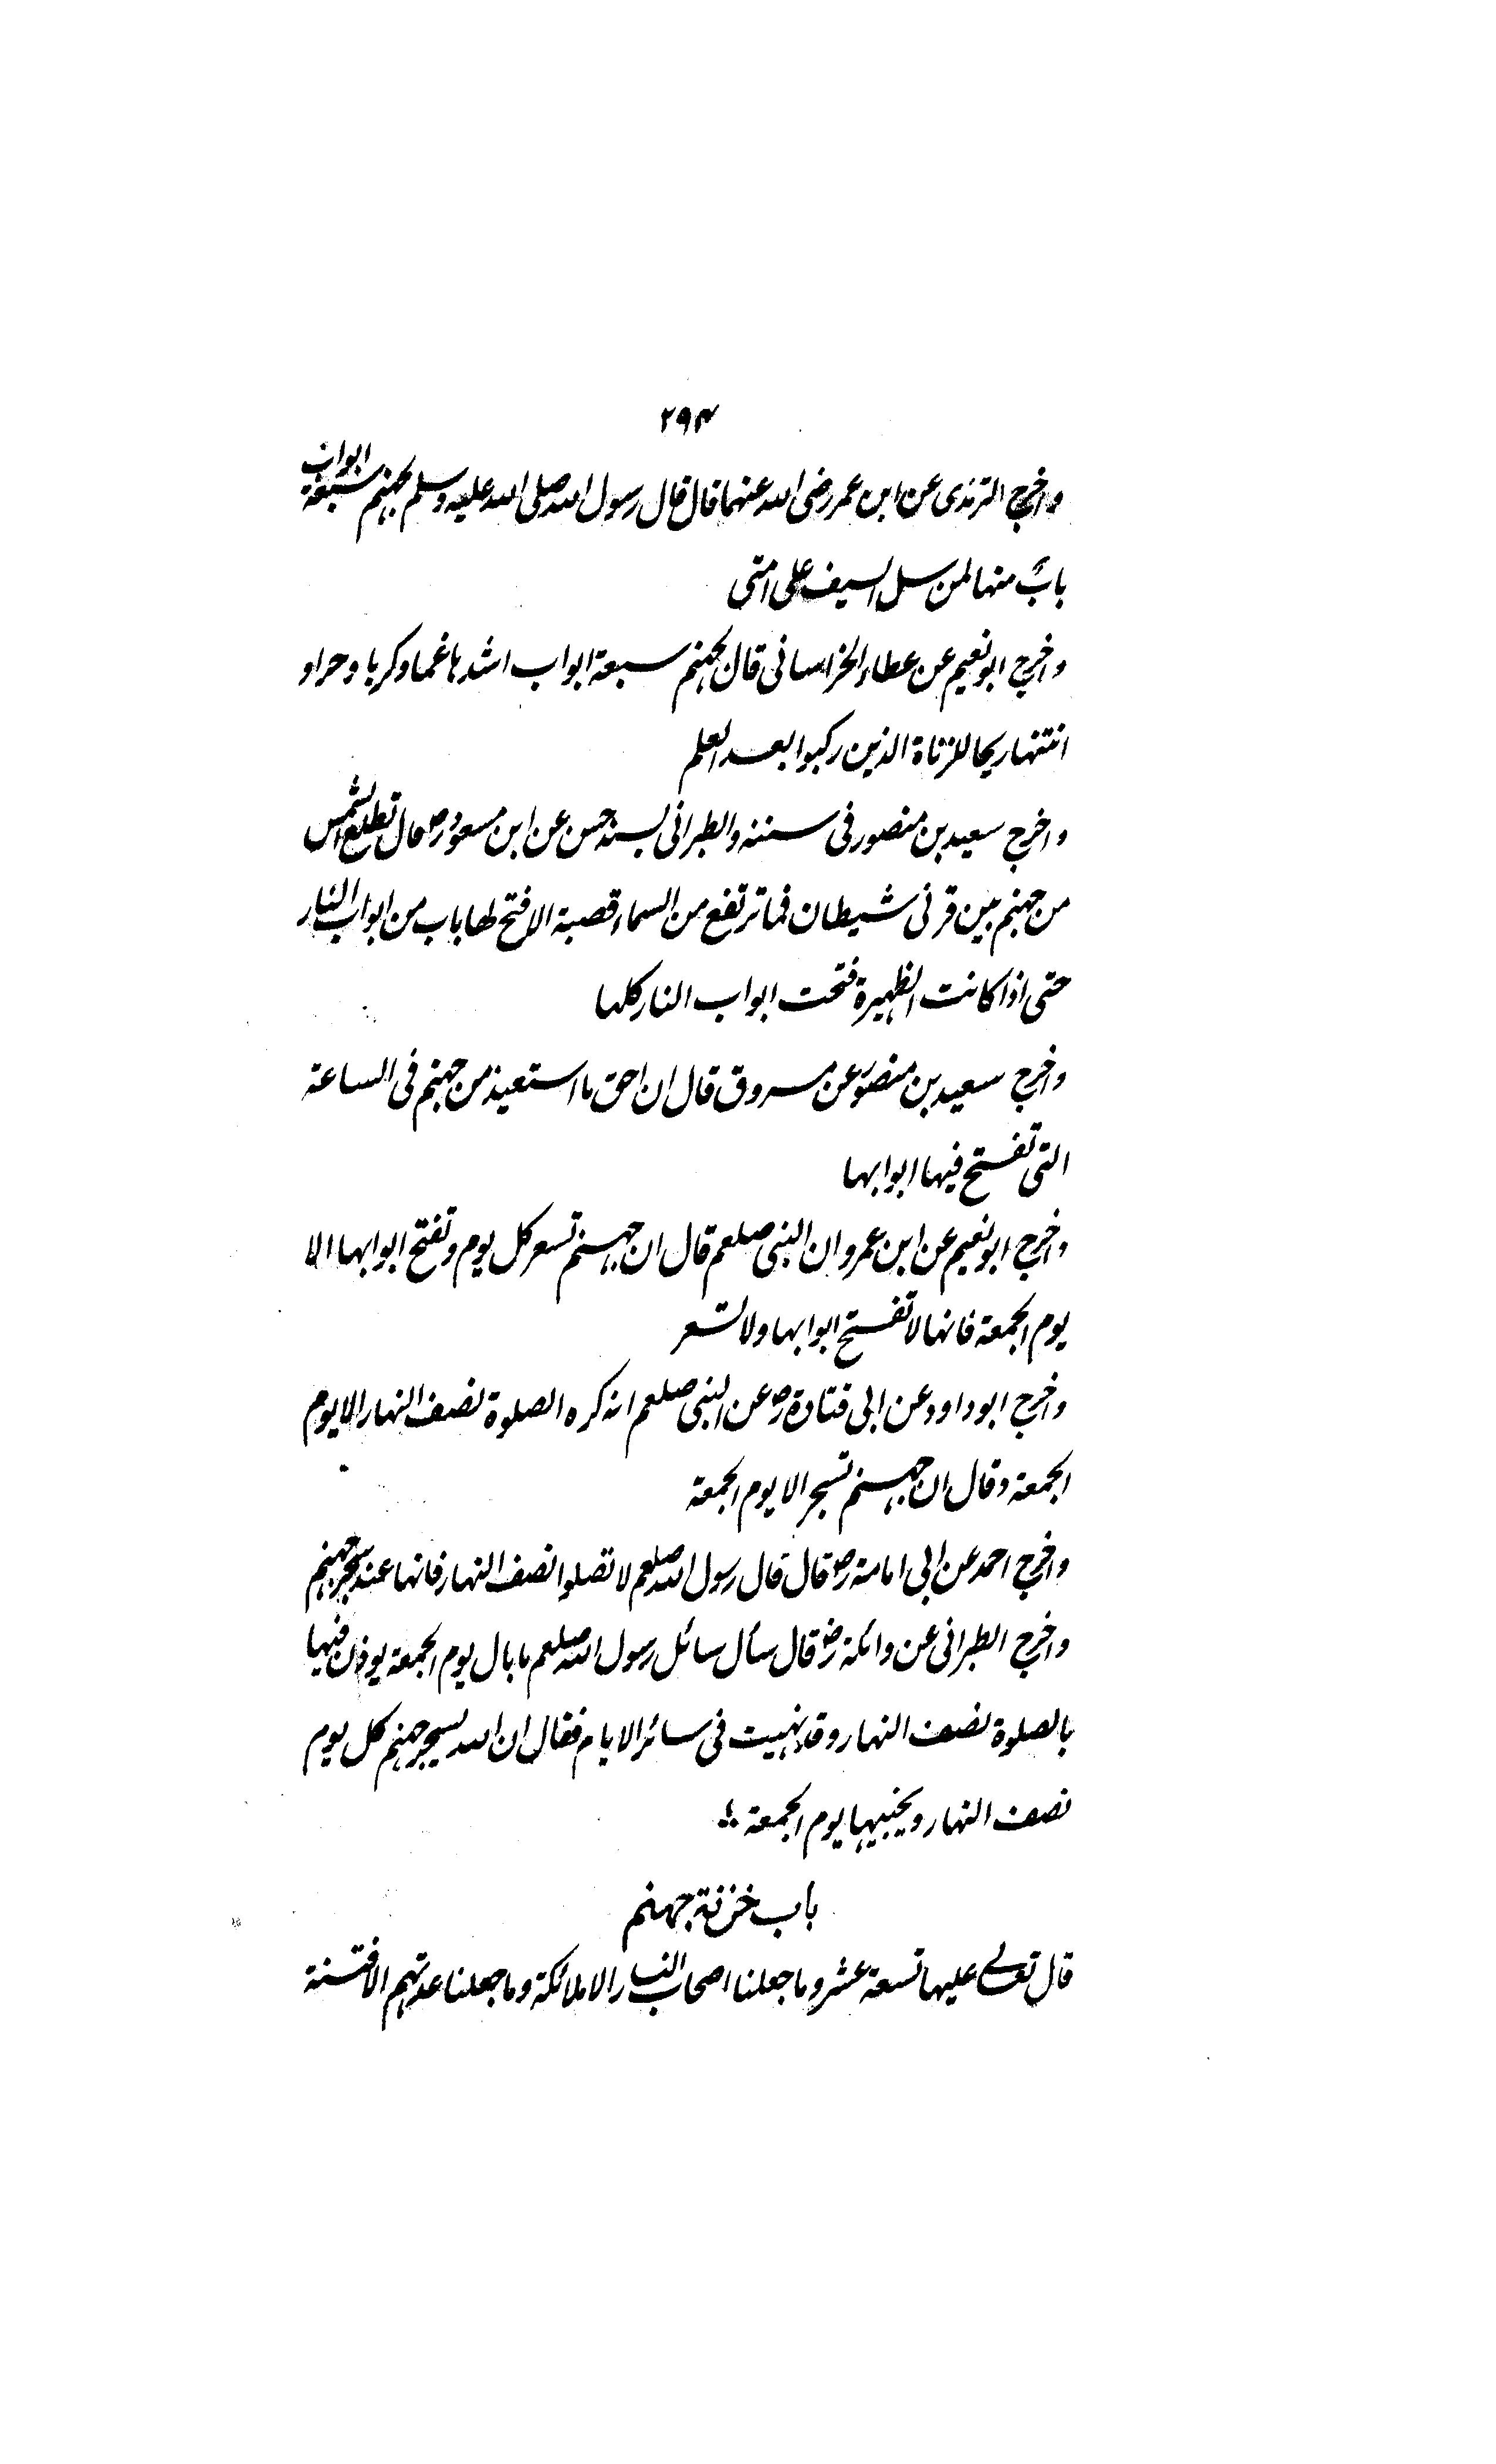 ۲۹۴
واخرج الترمذی عن ابن عمر رضی الله عنهما قال قال رسول الله صلی الله علیه وسلم لجهنم سبعة ابواب
باب منها لمن سل السیف علی امتی
واخرج ابو نعیم عن عطاء الخراسانی قال لجهنم سبعة ابواب اشدها غما وکربا وحرا و
انتنها ریحا للزناة الذین رکبوا بعد العلم
واخرج سعید بن منصور فی سننه والطبرانی بسند حسن عن ابن مسعود رض قال تطلع الشمس
من جهنم بین قرنی شیطان فما ترتفع من السماء قصبة الا فتح لها باب من ابواب النار
حتی اذا کانت الظهیرة فتحت ابواب النار کلها
واخرج سعید بن منصور عن مسروق قال ان احق ما استعیذ من جهنم فی الساعة
التی تفتح فیها ابوابها
واخرج ابو نعیم عن ابن عمرو ان النبی صلعم قال ان جهنم تسعر کل یوم وتفتح ابوابها الا
یوم الجمعة فانها لا تفتح ابوابها ولا تسعر
واخرج ابو داود عن ابی قتادة رض عن النبی صلعم انه کره الصلوة نصف النهار الا یوم
الجمعة وقال ان جهنم تسجر الا یوم الجمعة
واخرج احمد عن ابی امامة رض قال قال رسول الله صلعم لا تصلوا نصف النهار فانها عند سجر جهنم
واخرج الطبرانی عن واثلة رض قال سأل سائل رسول الله صلعم ما بال یوم الجمعة یوذن فیها
بالصلوة نصف النهار وقد نهیت فی سائر الایام فقال ان الله یسجر جهنم کل یوم
نصف النهار ویخبیها یوم الجمعة
باب خزنة جهنم
قال تعالے علیها تسعة عشر وما جعلنا اصحاب النار الا ملائکة وما جعلنا عدتهم الا فتنة